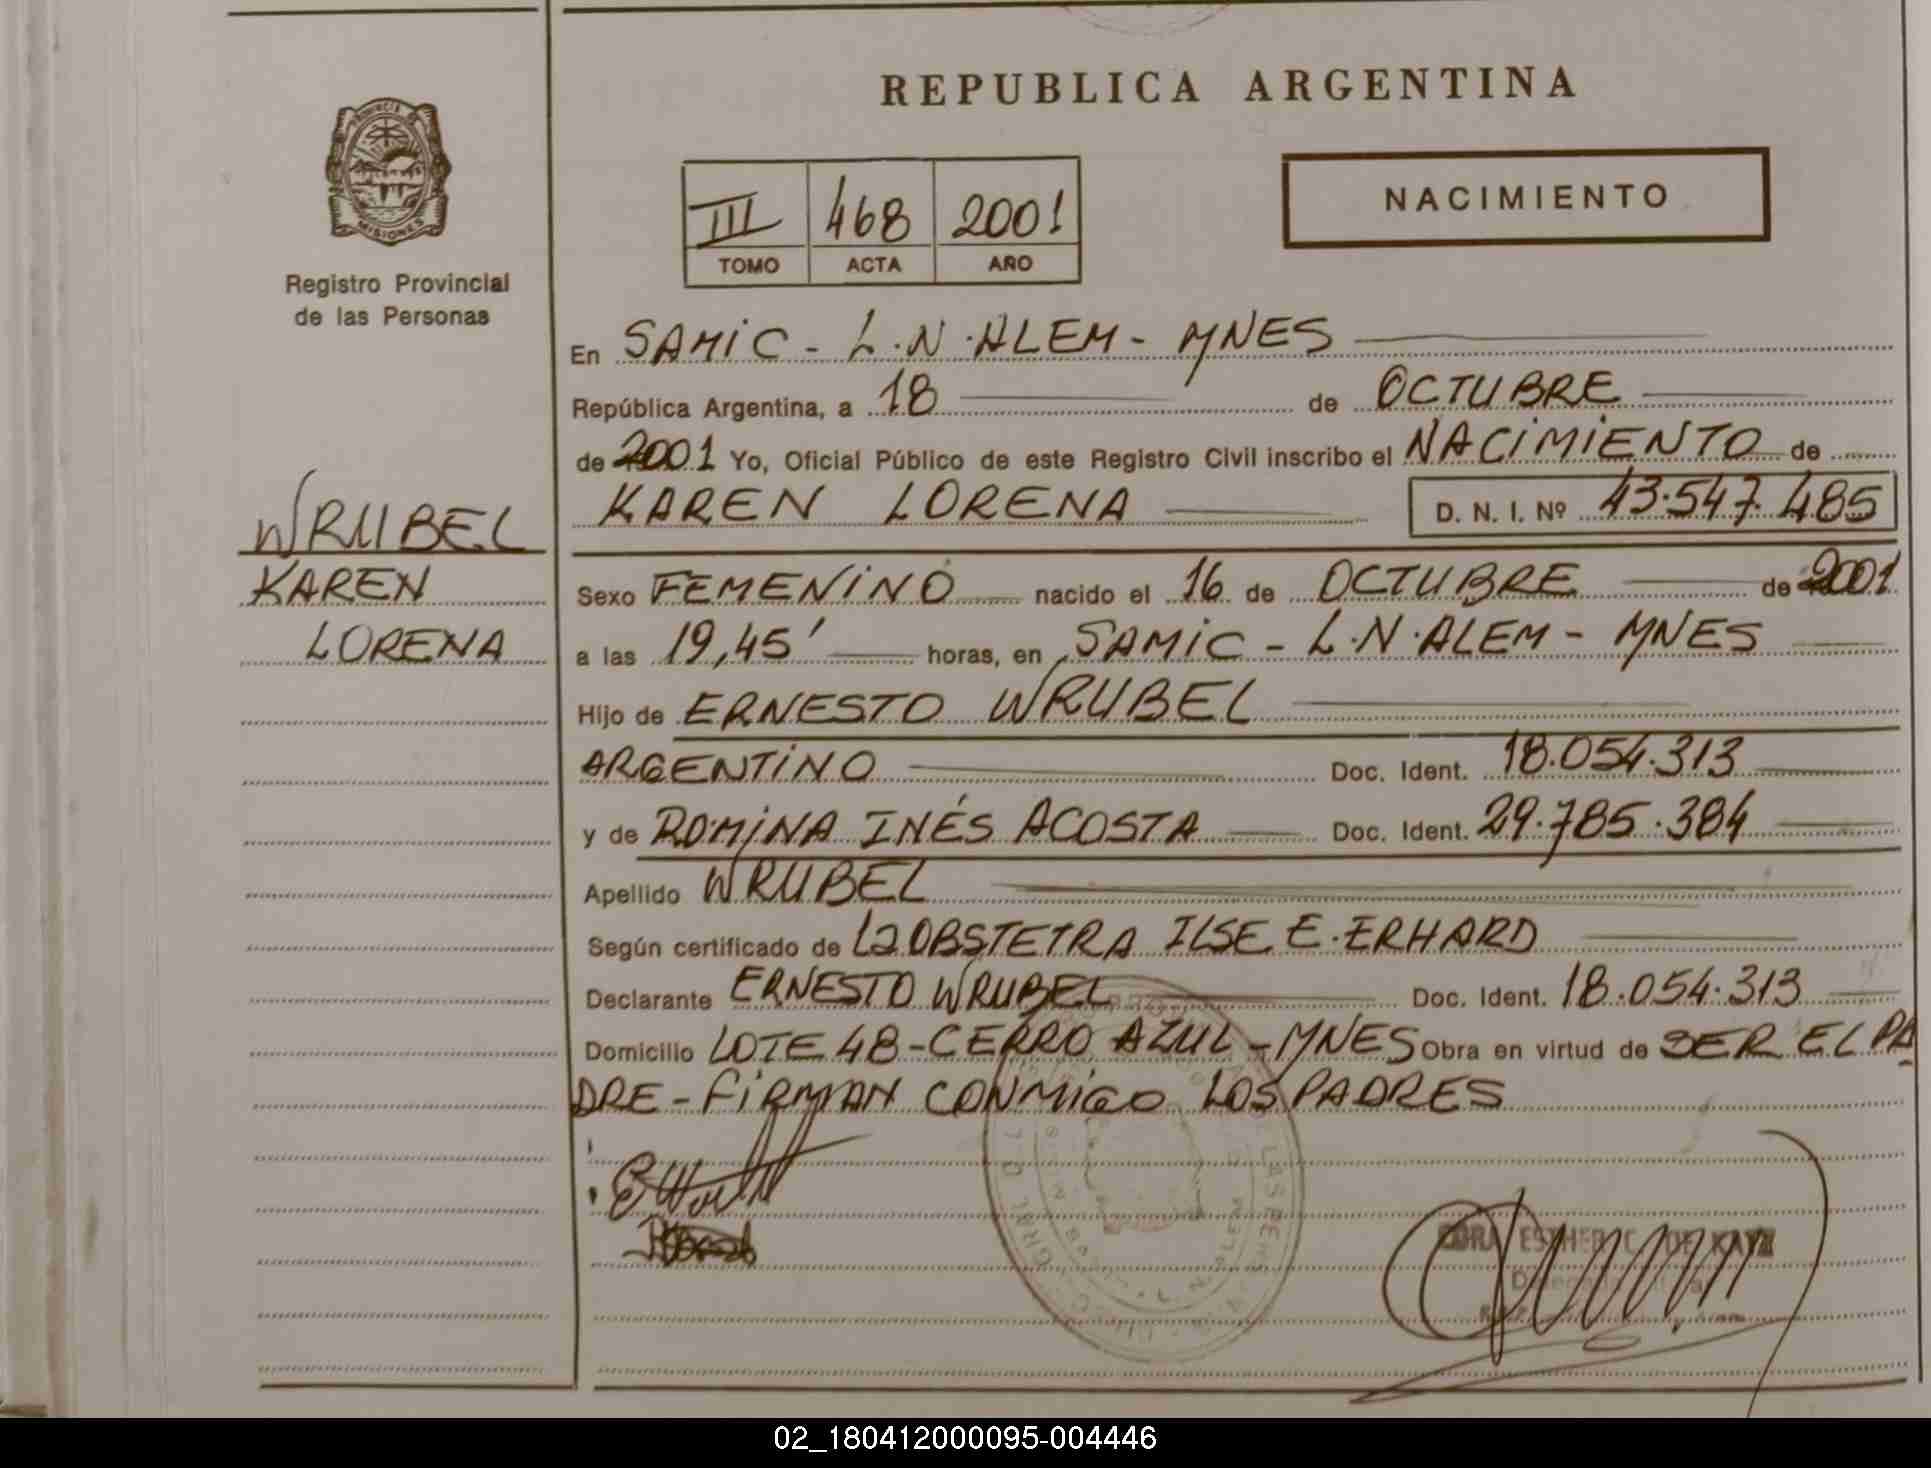 REPUBLICA ARGENTINA
PROVINCIA DE
MISIONES
Registro Provincial
de las Personas
III 468 2001
TOMO ACTA AÑO
NACIMIENTO
En SAMIC - L.N.ALEM - MNES
República Argentina, a 18 de OCTUBRE
de 2001 Yo, Oficial Público de este Registro Civil inscribo el NACIMIENTO de
KAREN LORENA D. N. I. Nº 43.547.485
WRUBEL
KAREN
LORENA
Sexo FEMENINO nacido el 16 de OCTUBRE de 2001
a las 19,45' horas, en SAMIC - L.N.ALEM - MNES
Hijo de ERNESTO WRUBEL
ARGENTINO Doc. Ident. 18.054.313
y de ROMINA INÉS ACOSTA Doc. Ident. 29.785.384
Apellido WRUBEL
Según certificado de La OBSTETRA ILSE E. ERHARD
Declarante ERNESTO WRUBEL Doc. Ident. 18.054.313
Domicilio LOTE 48 - CERRO AZUL - MNES Obra en virtud de SER EL PA
DRE - FIRMAN CONMIGO LOS PADRES
ESTHER C. DE
02_180412000095-004446